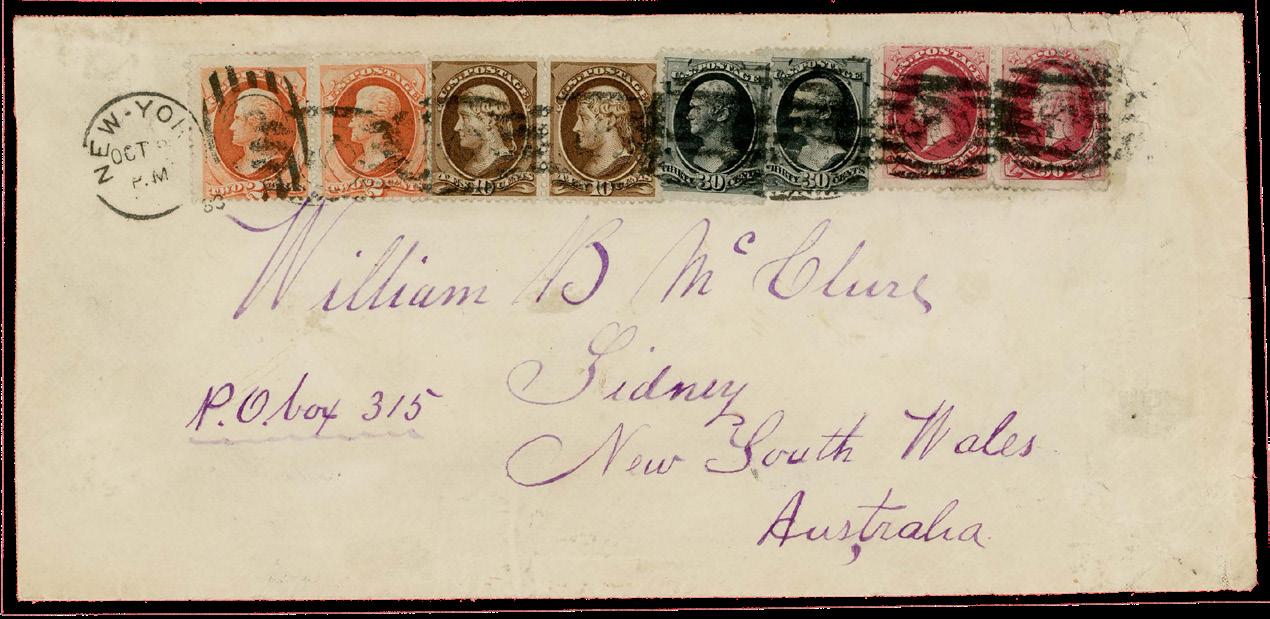 NEW-YO
OCT
P.M
U.S. POSTAGE
TWO 2 CENTS
U.S. POSTAGE
TWO 2 CENTS
U.S. POSTAGE
TEN 10 CENTS
U.S. POSTAGE
10 CENTS
U.S. POSTAGE
THIRTY 30 CENTS
U.S. POSTAGE
THIRTY 30 CENTS
POSTAGE
William B McClure
P.O. box 315
Sidney
New South Wales
Australia